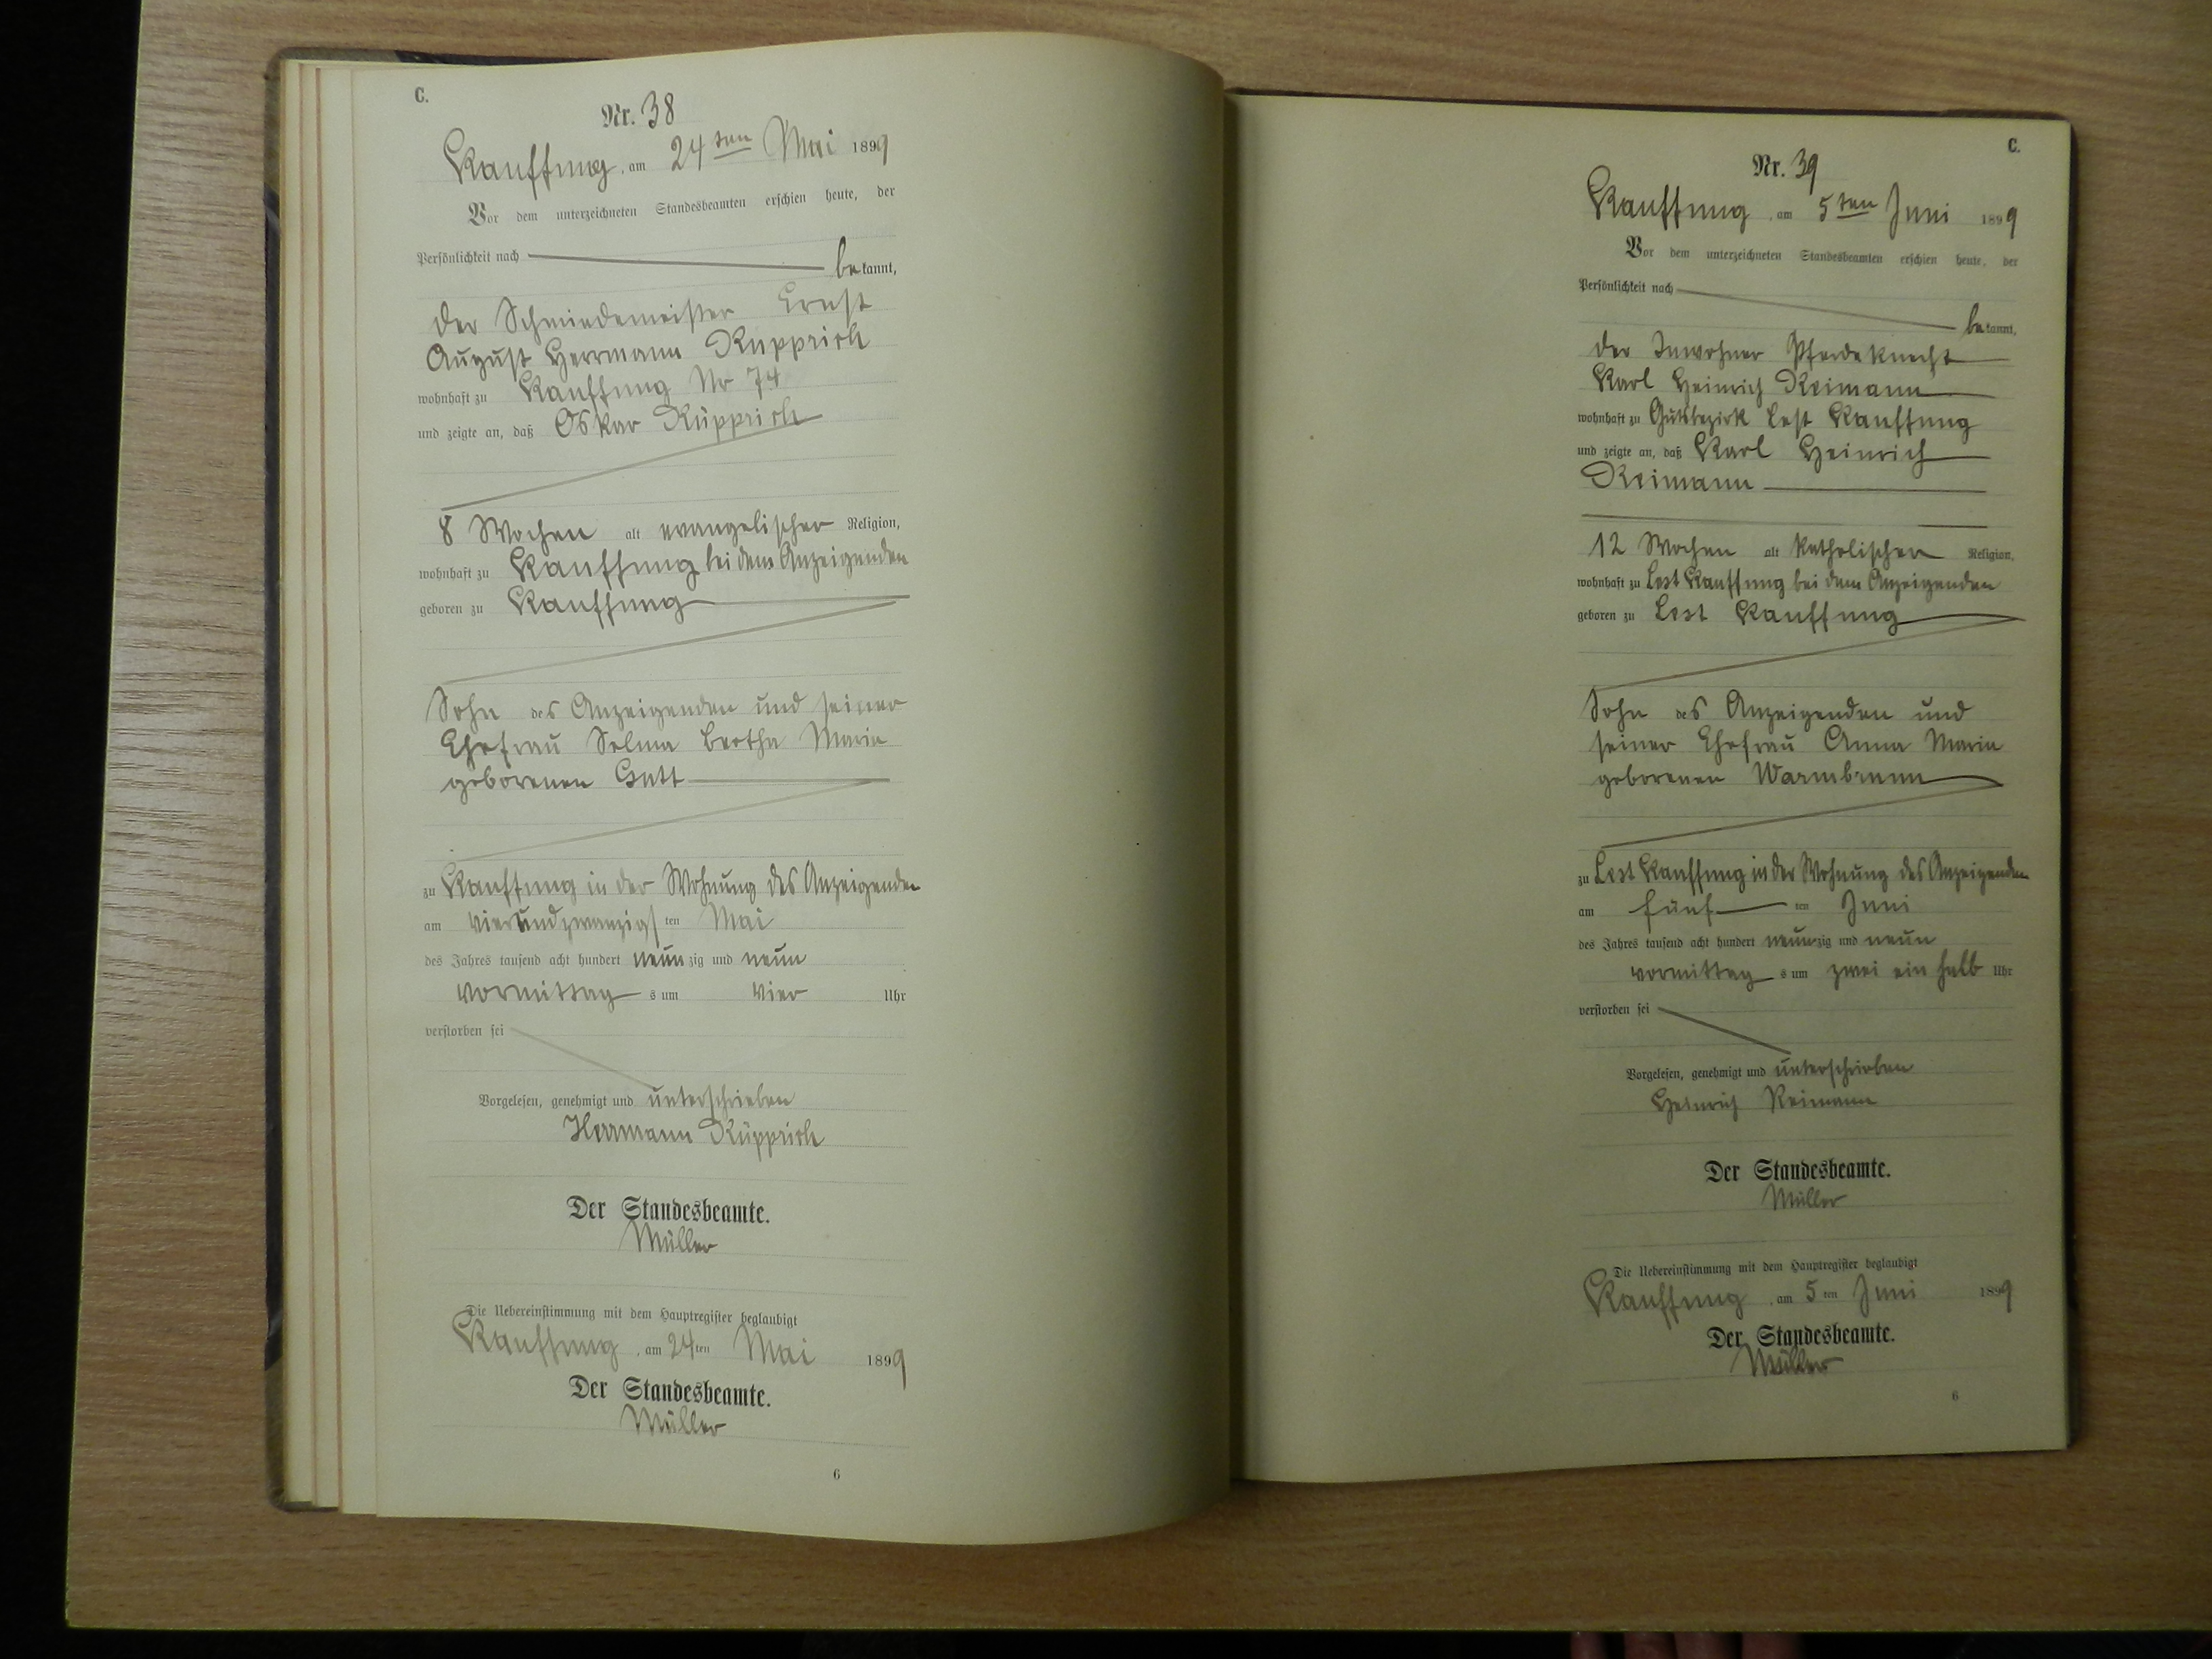 C.
Nr. 38
Kauffung, am 24ten Mai 1899
Vor dem unterzeichneten Standesbeamten erschien heute, der
Persönlichkeit nach
bekannt,
der Schmiedemeister Ernst
August Herrmann Rüpprich
wohnhaft zu Kauffung Nr 74
und zeigte an, daß Oskar Rüpprich
8 Wochen alt evangelischer Religion,
wohnhaft zu Kauffung bei dem Anzeigenden
geboren zu Kauffung
Sohn des Anzeigenden und seiner
Ehefrau Selma Bertha Maria
geborenen
zu Kauffung in der Wohnung des Anzeigenden
am vierundzwanzigsten Mai
des Jahres tausend acht hundert neunzig und neun
vormittags um vier Uhr
verstorben sei
Vorgelesen, genehmigt und unterschrieben
Herrmann Rüpprich
Der Standesbeamte.
Müller
Die Uebereinstimmung mit dem Hauptregister beglaubigt
Kauffung, am 24ten Mai 1899
Der Standesbeamte.
Müller
6
C.
Nr. 39
Kauffung, am 5ten Juni 1899
Vor dem unterzeichneten Standesbeamten erschien heute, der
Persönlichkeit nach
bekannt,
der Inwohner Pferdeknecht
Karl Heinrich Reimann
wohnhaft zu Gutsbezirk Lest Kauffung
und zeigte an, daß Karl Heinrich
Reimann
12 Wochen alt katholischer Religion,
wohnhaft zu Lest Kauffung bei dem Anzeigenden
geboren zu Lest Kauffung
Sohn des Anzeigenden und
seiner Ehefrau Anna Maria
geborenen Warmbrunn
zu Lest Kauffung in der Wohnung des Anzeigenden
am fünften Juni
des Jahres tausend acht hundert neunzig und neun
vormittags um zwei ein halb Uhr
verstorben sei
Vorgelesen, genehmigt und unterschrieben
Heinrich Reimann
Der Standesbeamte.
Müller
Die Uebereinstimmung mit dem Hauptregister beglaubigt
Kauffung, am 5ten Juni 1899
Der Standesbeamte.
Müller
6